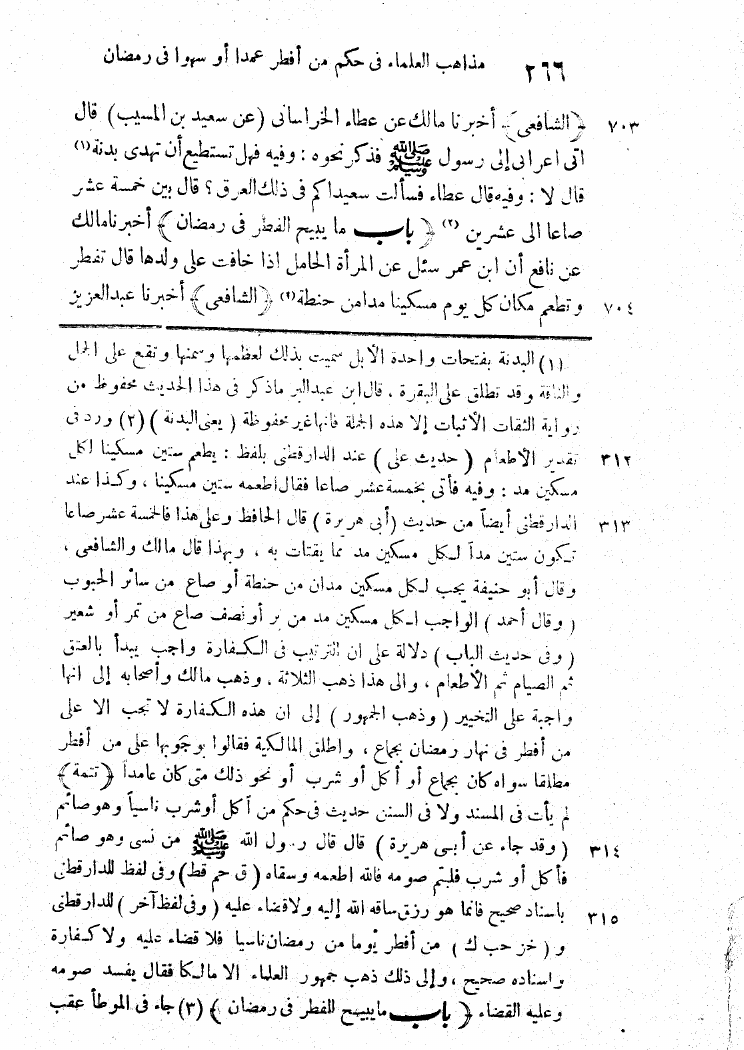 ٢٦٦ مذاهب العلماء فى حكم من أفطر عمدا أو سهوا فى رمضان
٧٠٣ ﴿الشافعى﴾ أخبرنا مالك عن عطاء الخراسانى (عن سعيد بن المسيب) قال
اتى اعرابى إلى رسول ﷺ فذكر نحوه : وفيه فهل تستطيع أن تهدى بدنة (١)
قال لا : وفيه قال عطاء فسألت سعيدا كم فى ذلك العرق؟ قال بين خمسة عشر
صاعا الى عشرين (٢) ﴿ باب ما يبيح الفطر فى رمضان ﴾ أخبرنا مالك
عن نافع أن ابن عمر سئل عن المرأة الحامل اذا خافت على ولدها قال تفطر
٧٠٤ وتطعم مكان كل يوم مسكينا مدا من حنطة (٩) ﴿الشافعى﴾ أخبرنا عبدالعزيز
(١) البدنة بفتحات واحدة الأبل سميت بذلك لعظمها وسمنها وتقع على الجمل
والناقة وقد تطلق على البقرة ، قال ابن عبدالبر ماذكر فى هذا الحديث محفوظ من
رواية الثقات الأثبات إلا هذه الجملة فانها غير محفوظة ( يعنى البدنة ) (٢) ورد فى
٣١٢ تقدير الأطعام ( حديث على ) عند الدارقطنى بلفظ : يطعم ستين مسكينا لكل
مسكين مد : وفيه فأتى بخمسة عشر صاعا فقال اطعمه ستين مسكينا ، وكذا عند
٣١٣ الدارقطنى أيضاً من حديث (أبى هريرة) قال الحافظ وعلى هذا فالخمسة عشر صاعا
تكون ستين مداً لكل مسكين مد مما يقتات به ، وبهذا قال مالك والشافعى ،
وقال أبو حنيفة يجب لكل مسكين مدان من حنطة أو صاع من سائر الحبوب
( وقال أحمد ) الواجب لكل مسكين مد من بر أو نصف صاع من تمر أو شعير
( وفى حديث الباب ) دلالة على ان الترتيب فى الكفارة واجب يبدأ بالعتق
ثم الصيام ثم الأطعام ، والى هذا ذهب الثلاثة ، وذهب مالك وأصحابه إلى انها
واجبة على التخيير ( وذهب الجمهور ) إلى ان هذه الكفارة لا تجب الا على
من أفطر فى نهار رمضان بجماع ، واطلق المالكية فقالوا بوجوبها على من أفطر
مطلقا سواه كان بجماع أو أكل أو شرب أو نحو ذلك متى كان عامداً ﴿تتمة﴾
لم يأت فى المسند ولا فى السنن حديث فى حكم من أكل أو شرب ناسياً وهو صائم
٣١٤ ( وقد جاء عن أبى هريرة ) قال قال رسول الله ﷺ من نسى وهو صائم
فأكل أو شرب فليتم صومه فالله اطعمه وسقاه (ق حم قط) وفى لفظ للدارقطنى
٣١٥ باسناد صحيح فانما هو رزق ساقه الله إليه ولا قضاء عليه (وفى لفظ آخر) للدارقطنى
و ( خز حب ك ) من أفطر يوما من رمضان ناسيا فلا قضاء عليه ولا كفارة
واسناده صحيح ، وإلى ذلك ذهب جمهور العلماء الا مالكا فقال يفسد صومه
وعليه القضاء ﴿ باب ما يبيح للفطر فى رمضان ﴾ (٣) جاء فى الموطأ عقب